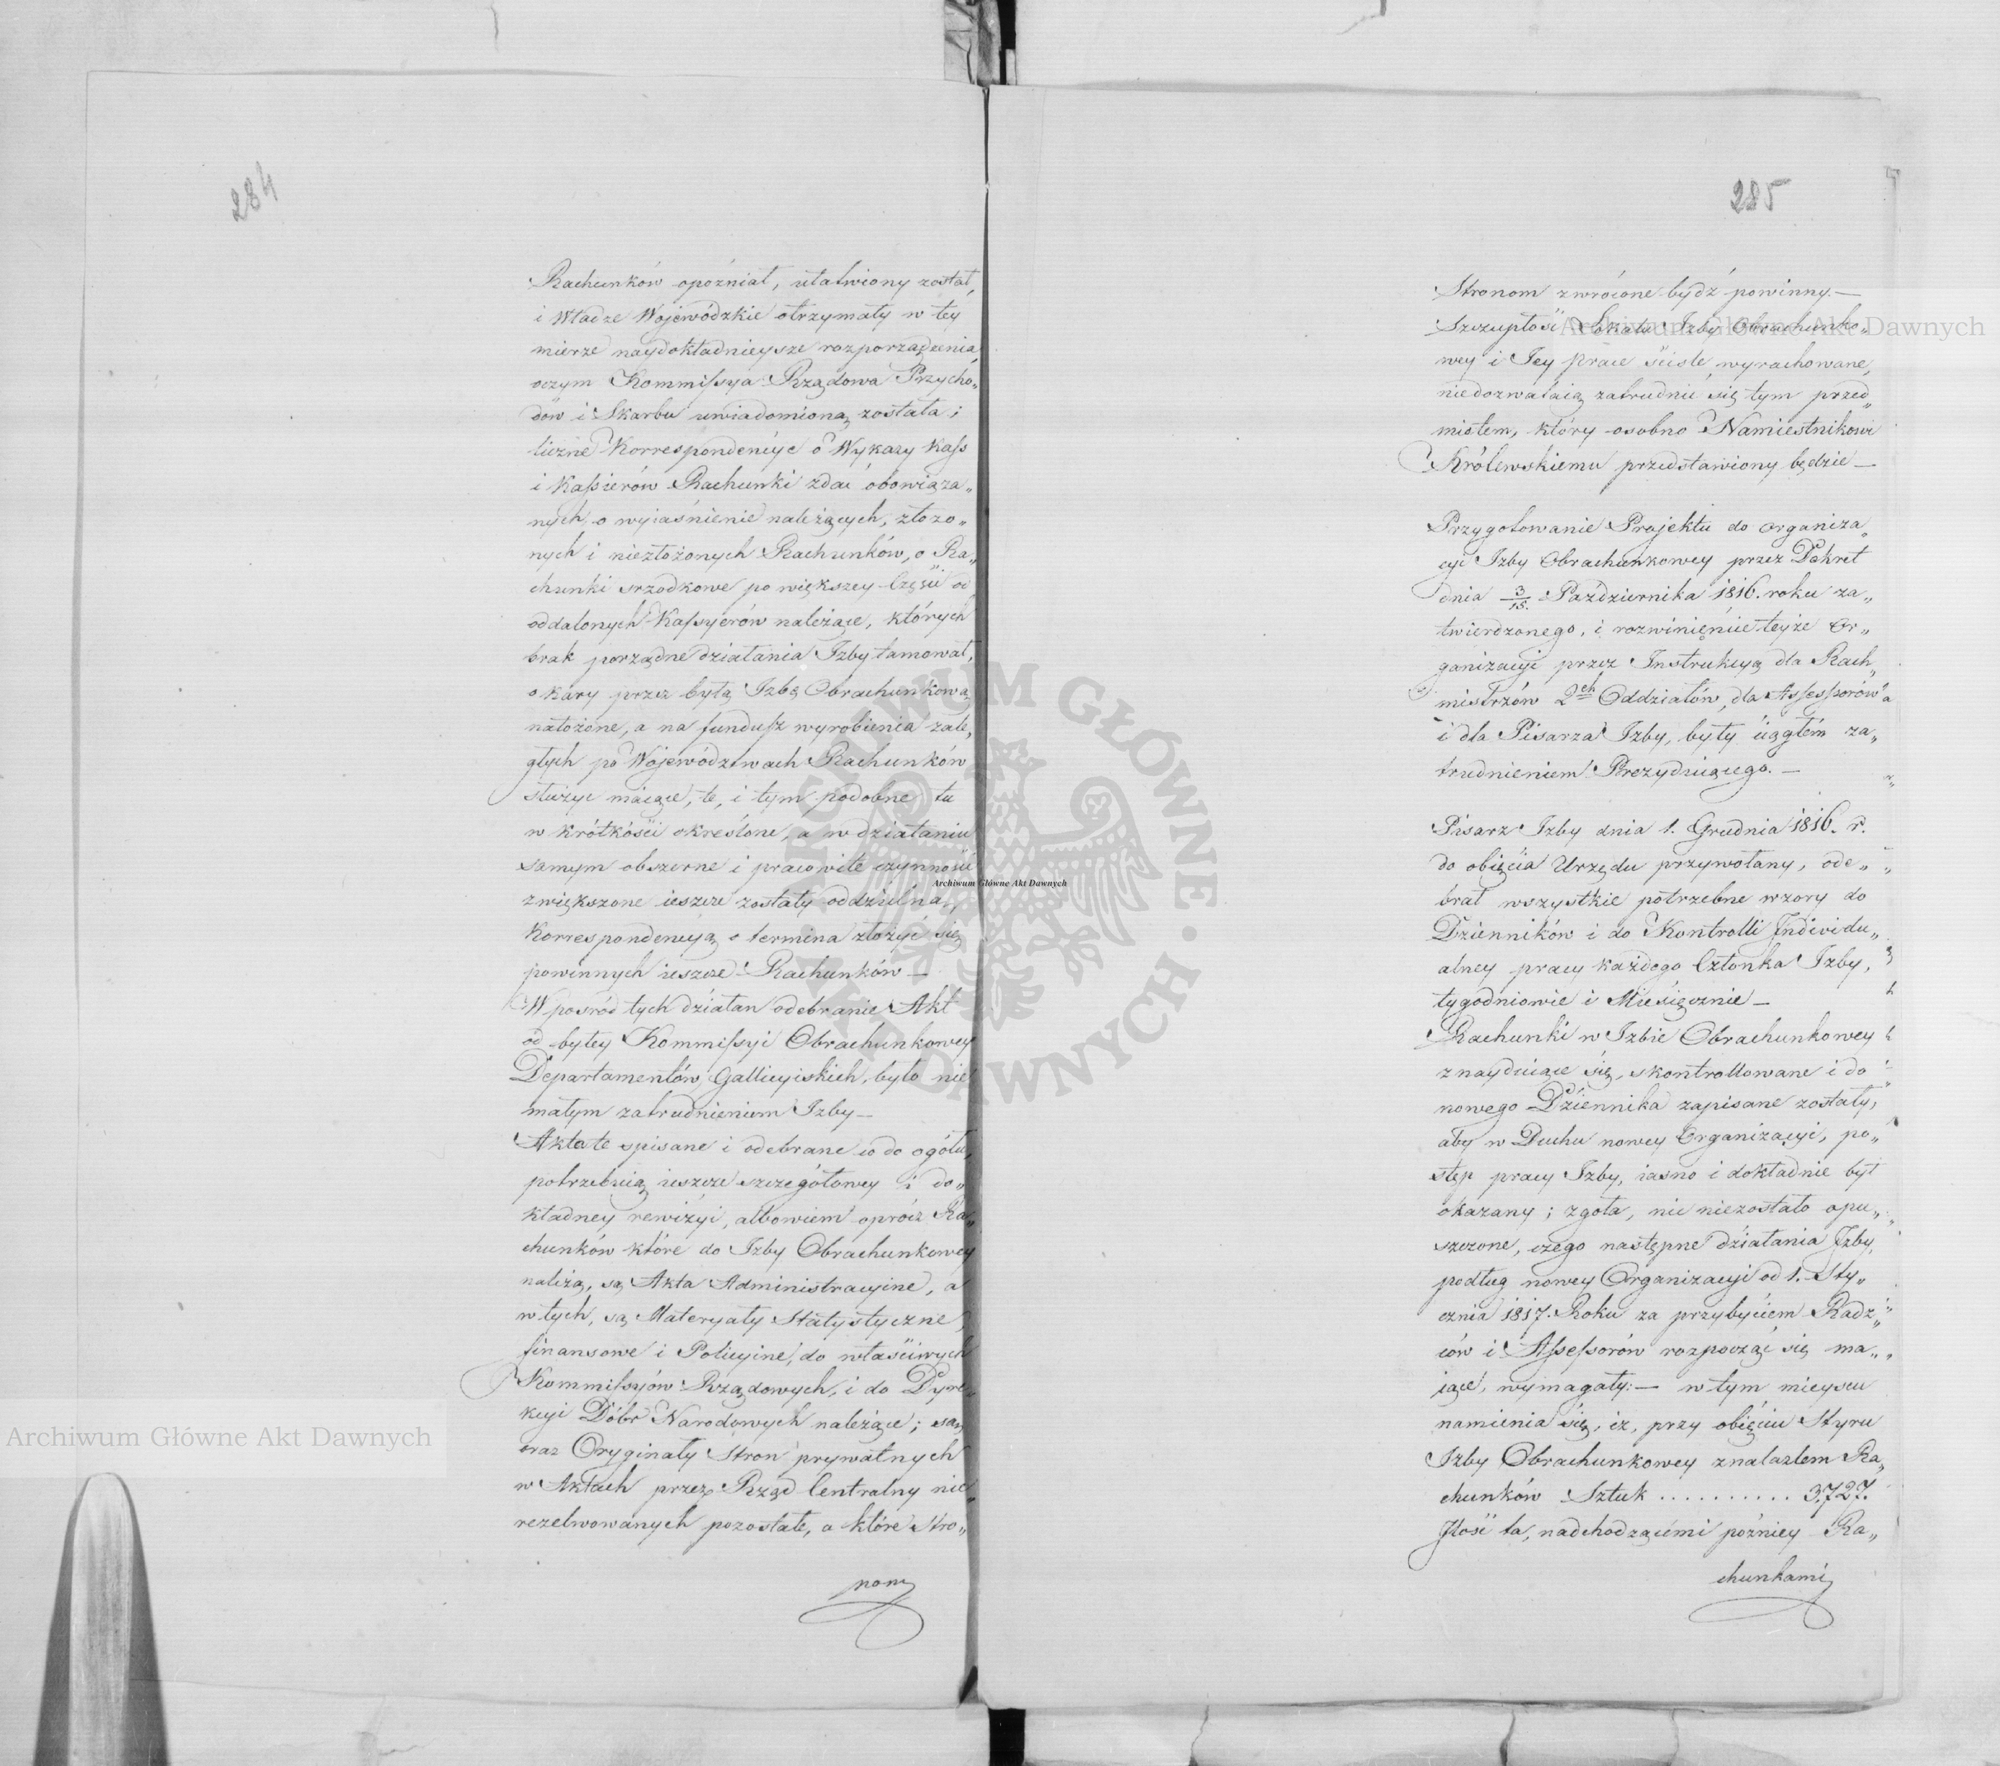 284
Rachunków opóźniał, ułatwiony został,
i Władze Wojewódzkie otrzymały w tey
mierze naydokładnieysze rozporządzenia,
oczym Kommissya Rządowa Przycho„
dów i Skarbu uwiadomioną została;
liczne Korrespondencye o Wykazy Kass
i Kassierów Rachunki zdać obowiąza„
nych, o wyiaśnienie należących, złożo„
nych i niezłożonych Rachunków, o Ra„
chunki srzodkowe po większey Części od
oddalonych Kassyerów należące, których
brak porządne działania Izby tamował,
o kary przez byłą Izbę Obrachunkową
nałożone, a na fundusz wyrobienia zale„
głych po Województwach Rachunków
służyć maiące, te, i tym podobne tu
w krótkości okreslone, a w działaniu
samym obszerne i pracowite czynności
zwiększone ieszcze zostały oddzielną
Korrespondencyą o termina złożyć się
powinnych ieszcze Rachunków —
W posród tych działań odebranie Akt
od byłey Kommissyi Obrachunkowey
Departamentów Gallicyiskich, było nie
małym zatrudnieniem Izby —
Akta te spisane i odebrane co do ogółu,
potrzebuią ieszcze szczegółowey i do„
kładney rewizyi, albowiem oprócz Ra„
chunków które do Izby Obrachunkowey
należą, są Akta Administracyine, a
w tych, są Materyały Statystyczne,
finansowe i Policyine, do właściwych
Kommissyów Rządowych, i do Dyre„
kcyi Dóbr Narodowych należące; są
oraz Oryginały Stron prywatnych
w Aktach przez Rząd Centralny nie
rezelwowanych pozostałe, a które Stro„
nom
285
Stronom zwrócone bydź powinny. —
Szczupłość Lokalu Izby Obrachunko„
wey i Jey prace ściśle wyrachowane,
niedozwalaią zatrudnić się tym przed„
miotem, który osobno Namiestnikowi
Królewskiemu przedstawiony będzie —
Przygotowanie Projektu do organiza„
cyi Izby Obrachunkowey przez Dekret
dnia 3/15. Października 1816. roku za„
twierdzonego, i rozwinięnie teyże Or„
ganizacyi przez Instrukcyą dla Rach„
mistrzów 2ch Oddziałów, dla Assessorów
i dla Pisarza Izby, były ciągłém za„
trudnieniem Prezyduiącego. —
Pisarz Izby dnia 1. Grudnia 1816. r.
do obięcia Urzędu przywołany, ode„
brał wszystkie potrzebne wzory do
Dzienników i do Kontrolli Individu„
alney pracy każdego Członka Izby,
tygodniowie i Miesięcznie —
Rachunki w Izbie Obrachunkowey
znayduiące się, skontrollowane i do
nowego Dziennika zapisane zostały,
aby w Duchu nowey Organizacyi, po„
stęp pracy Izby, iasno i dokładnie był
okazany; zgoła, nic niezostało opu„
szczone, czego następne działania Izby,
podług nowey Organizacyi od 1. Sty„
cznia 1817. Roku za przybyciem Radz„
ców i Assessorów rozpocząć się ma„
iące, wymagały: — w tym mieyscu
namienia się, iż, przy obięciu Styru
Izby Obrachunkowey znalazłem Ra„
chunków Sztuk .......... 3,727.
Ilość ta, nadchodzącemi poźniey Ra„
chunkami
Archiwum Główne Akt Dawnych
Archiwum Główne Akt Dawnych
Archiwum Główne Akt Dawnych
ARCHIWUM GŁÓWNE AKT DAWNYCH